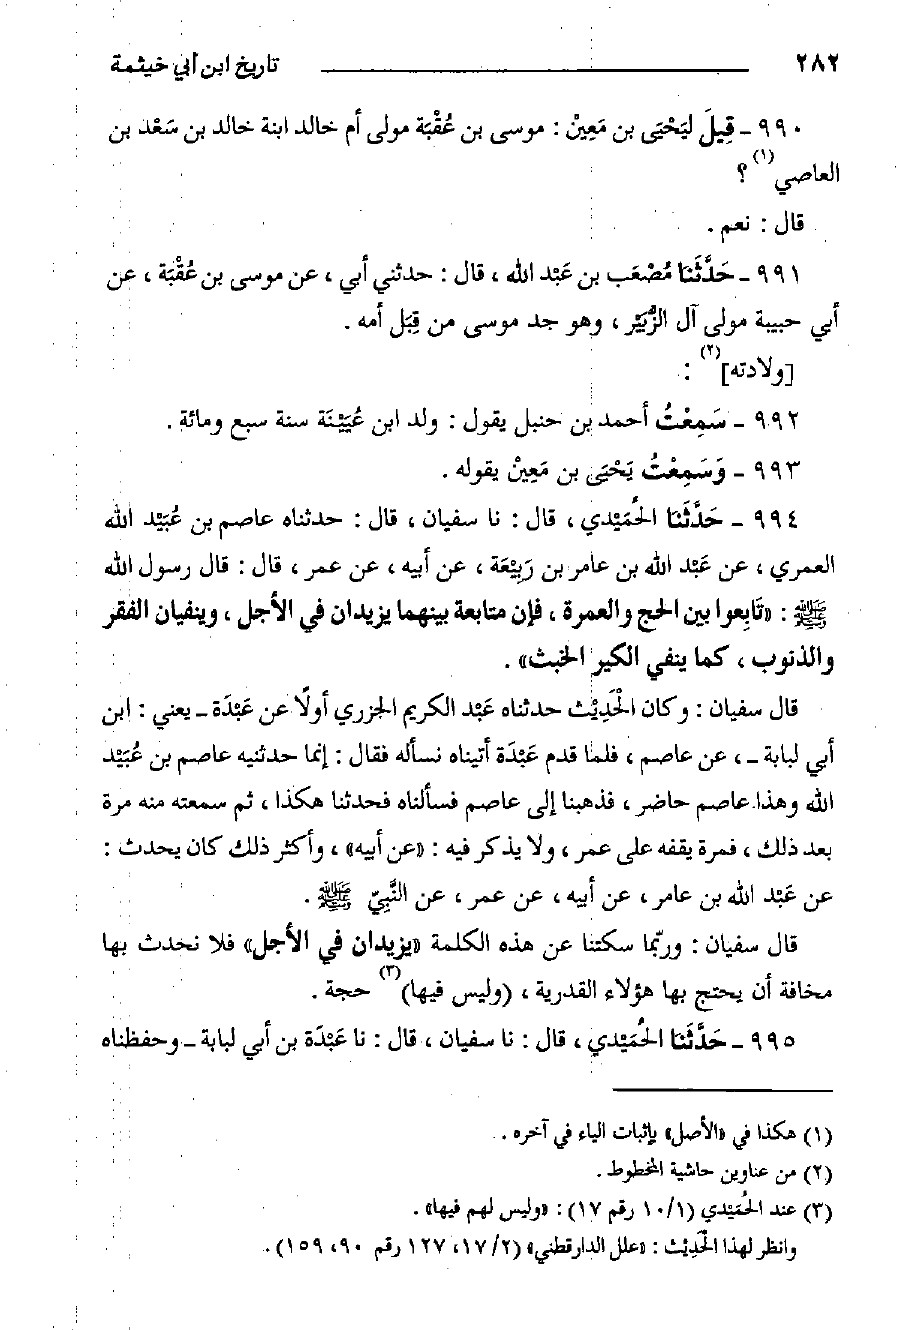 ٢٨٢ تاريخ ابن أبي خيثمة
٩٩٠ ـ قِيلَ ليَحْيَى بن مَعِينْ : موسى بن عُقْبَة مولى أم خالد ابنة خالد بن سَعْد بن
العاصي(١) ؟
قال : نعم .
٩٩١ ـ حَدَّثَنَا مُصْعَب بن عَبْد الله ، قال : حدثني أبي ، عن موسى بن عُقْبَة ، عن
أبي حبيبة مولى آل الزُّبَيْر ، وهو جد موسى من قِبَل أمه .
[ولادته](٢) :
٩٩٢ ـ سَمِعْتُ أحمد بن حنبل يقول : ولد ابن عُيَيْنَة سنة سبع ومائة .
٩٩٣ ـ وَسَمِعْتُ يَحْيَى بن مَعِينْ يقوله .
٩٩٤ ـ حَدَّثَنَا الحُمَيْدي ، قال : نا سفيان ، قال : حدثناه عاصم بن عُبَيْد الله
العمري ، عن عَبْد الله بن عامر بن رَبِيْعَة ، عن أبيه ، عن عمر ، قال : قال رسول الله
ﷺ : «تَابِعوا بين الحج والعمرة ، فإن متابعة بينهما يزيدان في الأجل ، وينفيان الفقر
والذنوب ، كما ينفي الكير الخبث» .
قال سفيان : وكان الحَدِيْث حدثناه عَبْد الكريم الجزري أولًا عن عَبْدَة ـ يعني : ابن
أبي لبابة ـ ، عن عاصم ، فلما قدم عَبْدَة أتيناه نسأله فقال : إنما حدثنيه عاصم بن عُبَيْد
الله وهذا عاصم حاضر ، فذهبنا إلى عاصم فسألناه فحدثنا هكذا ، ثم سمعته منه مرة
بعد ذلك ، فمرة يقفه على عمر ، ولا يذكر فيه : «عن أبيه» ، وأكثر ذلك كان يحدث :
عن عَبْد الله بن عامر ، عن أبيه ، عن عمر ، عن النَّبِيّ ﷺ .
قال سفيان : وربّما سكتنا عن هذه الكلمة «يزيدان في الأجل» فلا نحدث بها
مخافة أن يحتج بها هؤلاء القدرية ، (وليس فيها)(٣) حجة .
٩٩٥ ـ حَدَّثَنَا الحُمَيْدي ، قال : نا سفيان ، قال : نا عَبْدَة بن أبي لبابة ـ وحفظناه
(١) هكذا في «الأصل» بإثبات الياء في آخره .
(٢) من عناوين حاشية المخطوط .
(٣) عند الحُمَيْدي (١٠/١ رقم ١٧) : «وليس لهم فيها» .
وانظر لهذا الحَدِيْث : «علل الدارقطني» (١٧/٢، ١٢٧ رقم ٩٠، ١٥٩) .